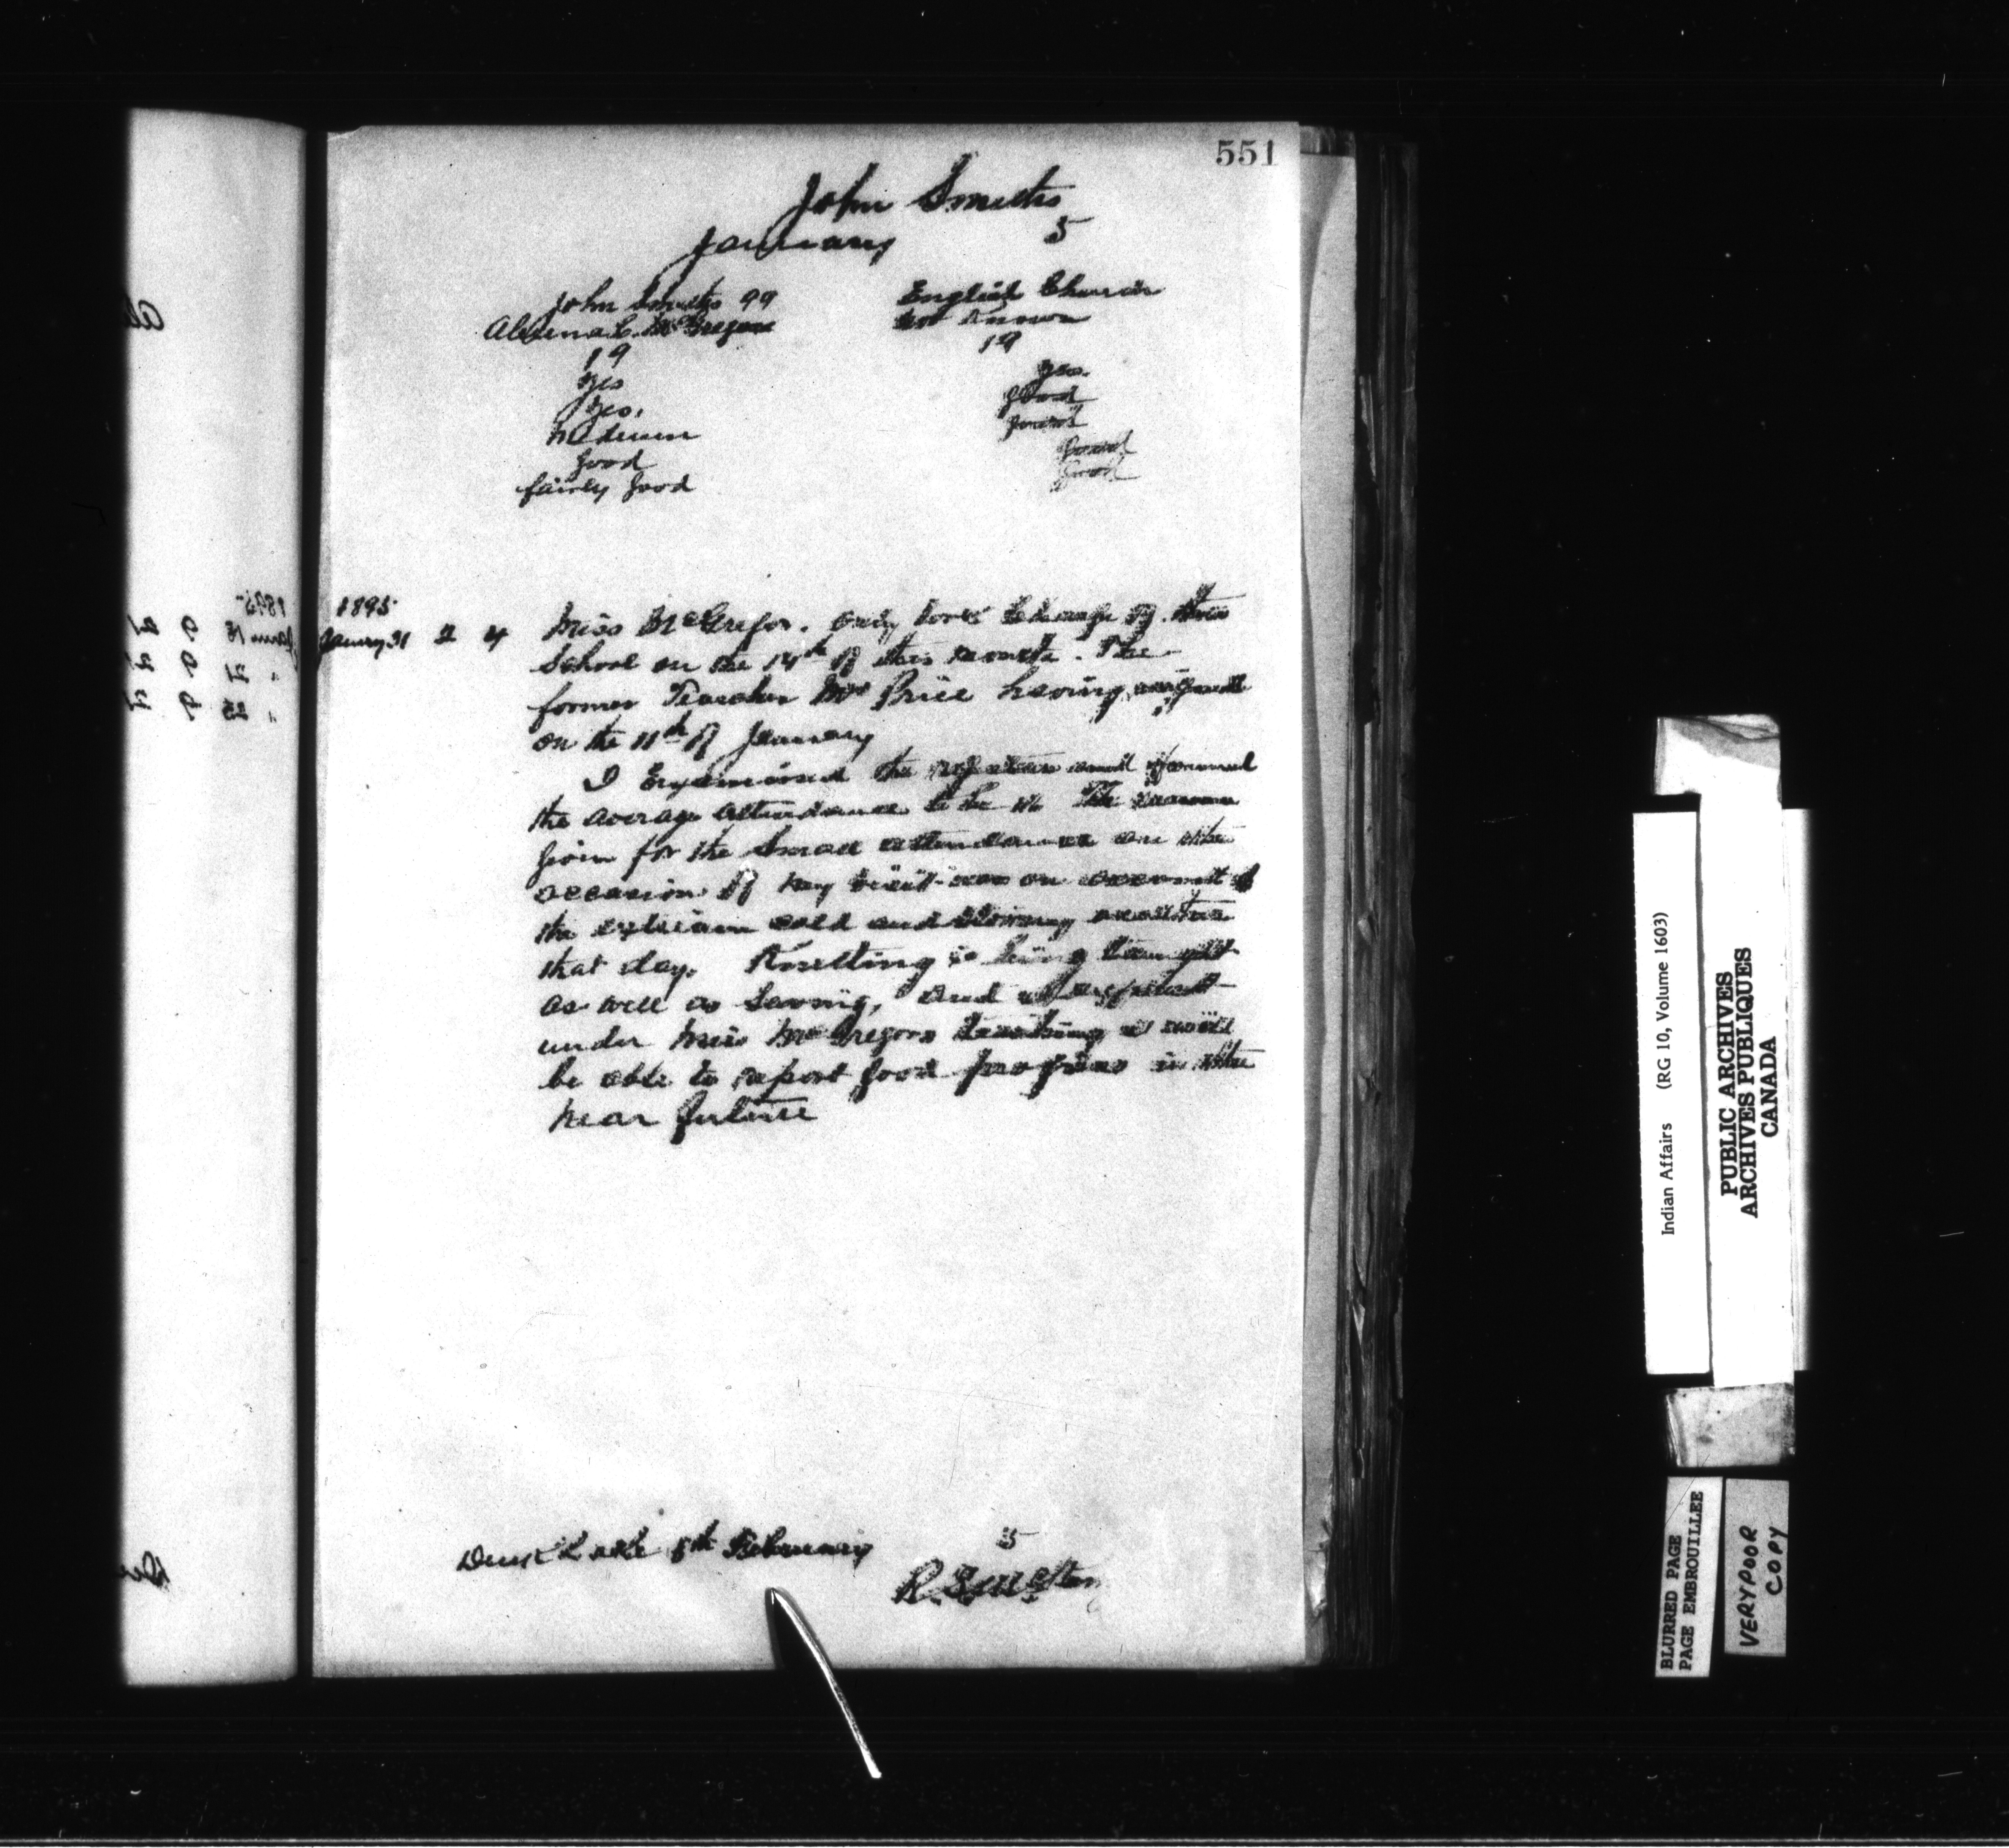 551
John Smiths
January 5
John Smiths 99 English Church
C. McGregor Not Known
19 19
Yes Yes.
Yes. Good
Medium Good
Good Good
fairly good Good
1895
January 31 2 4 Miss McGregor. only took charge of this
School on the 14th of this month. The
former Teacher Mr Price having
on the 11th of January
I Examined the register and found
the average attendance to be The reason
given for the small attendance on the
occasion of my visit was on account of
the extreme cold and stormy weather
that day. Knitting is being taught
as well as Sewing, and I expect
under Miss McGregors teaching I will
be able to report good progress in the
near future
Duck Lake 5th February 5
R.
1895
Indian Affairs (RG 10, Volume 1603)
PUBLIC ARCHIVES
ARCHIVES PUBLIQUES
CANADA
BLURRED PAGE
PAGE EMBROUILLEE
VERY POOR
COPY